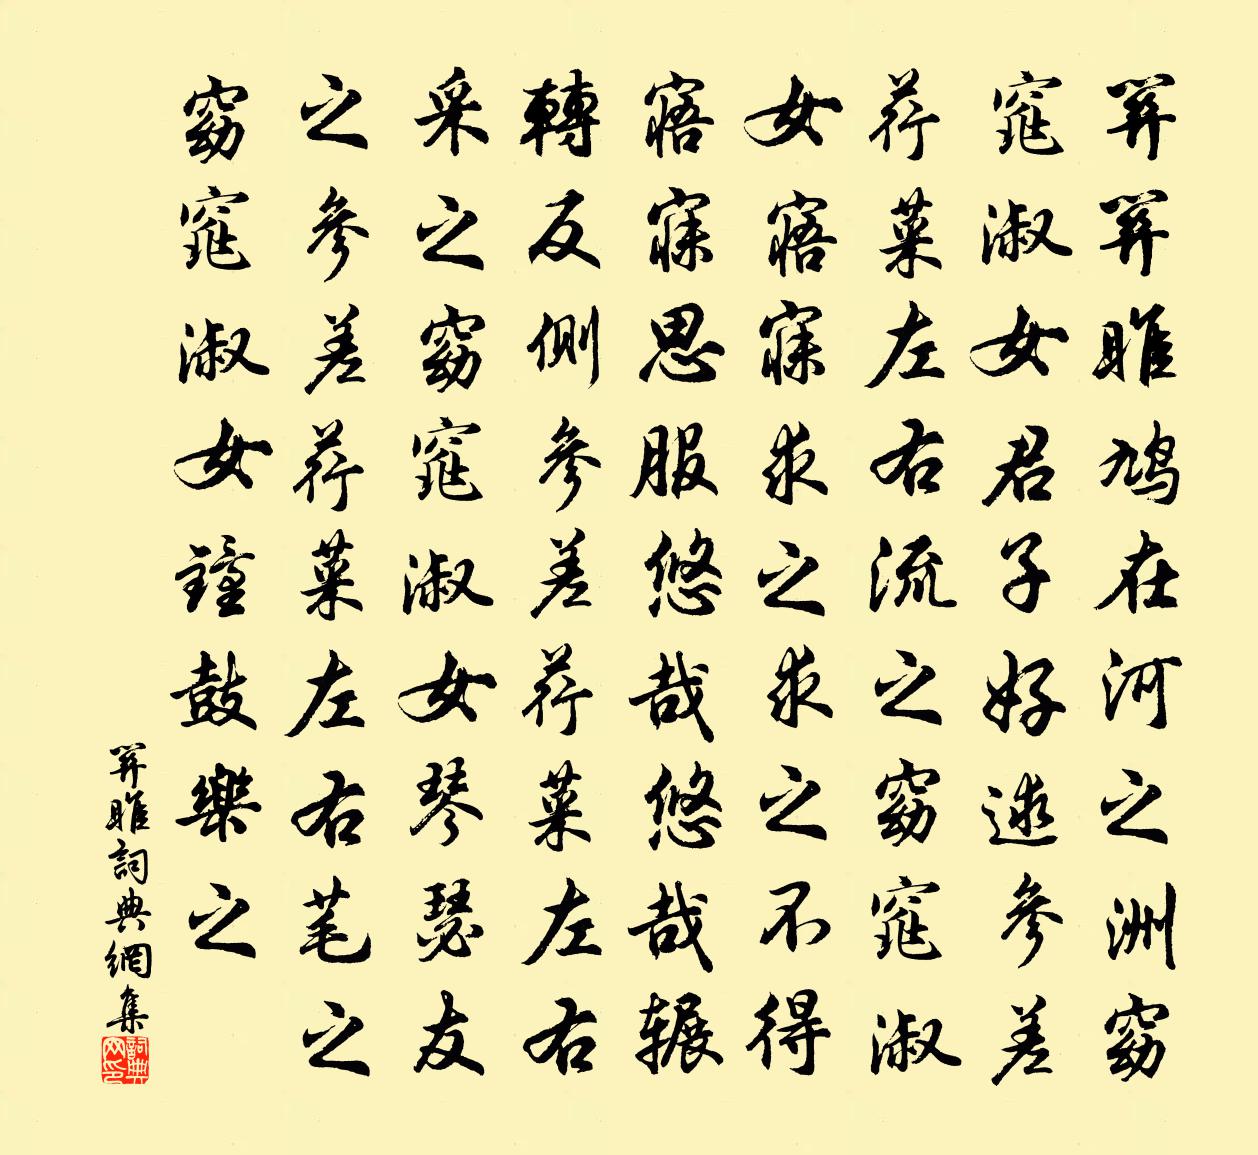 關關雎鳩在河之洲窈
窕淑女君子好逑參差
荇菜左右流之窈窕淑
女寤寐求之求之不得
寤寐思服悠哉悠哉辗
轉反側參差荇菜左右
采之窈窕淑女琴瑟友
之參差荇菜左右芼之
窈窕淑女鐘鼓樂之
關雎詞典網集
詞典网印